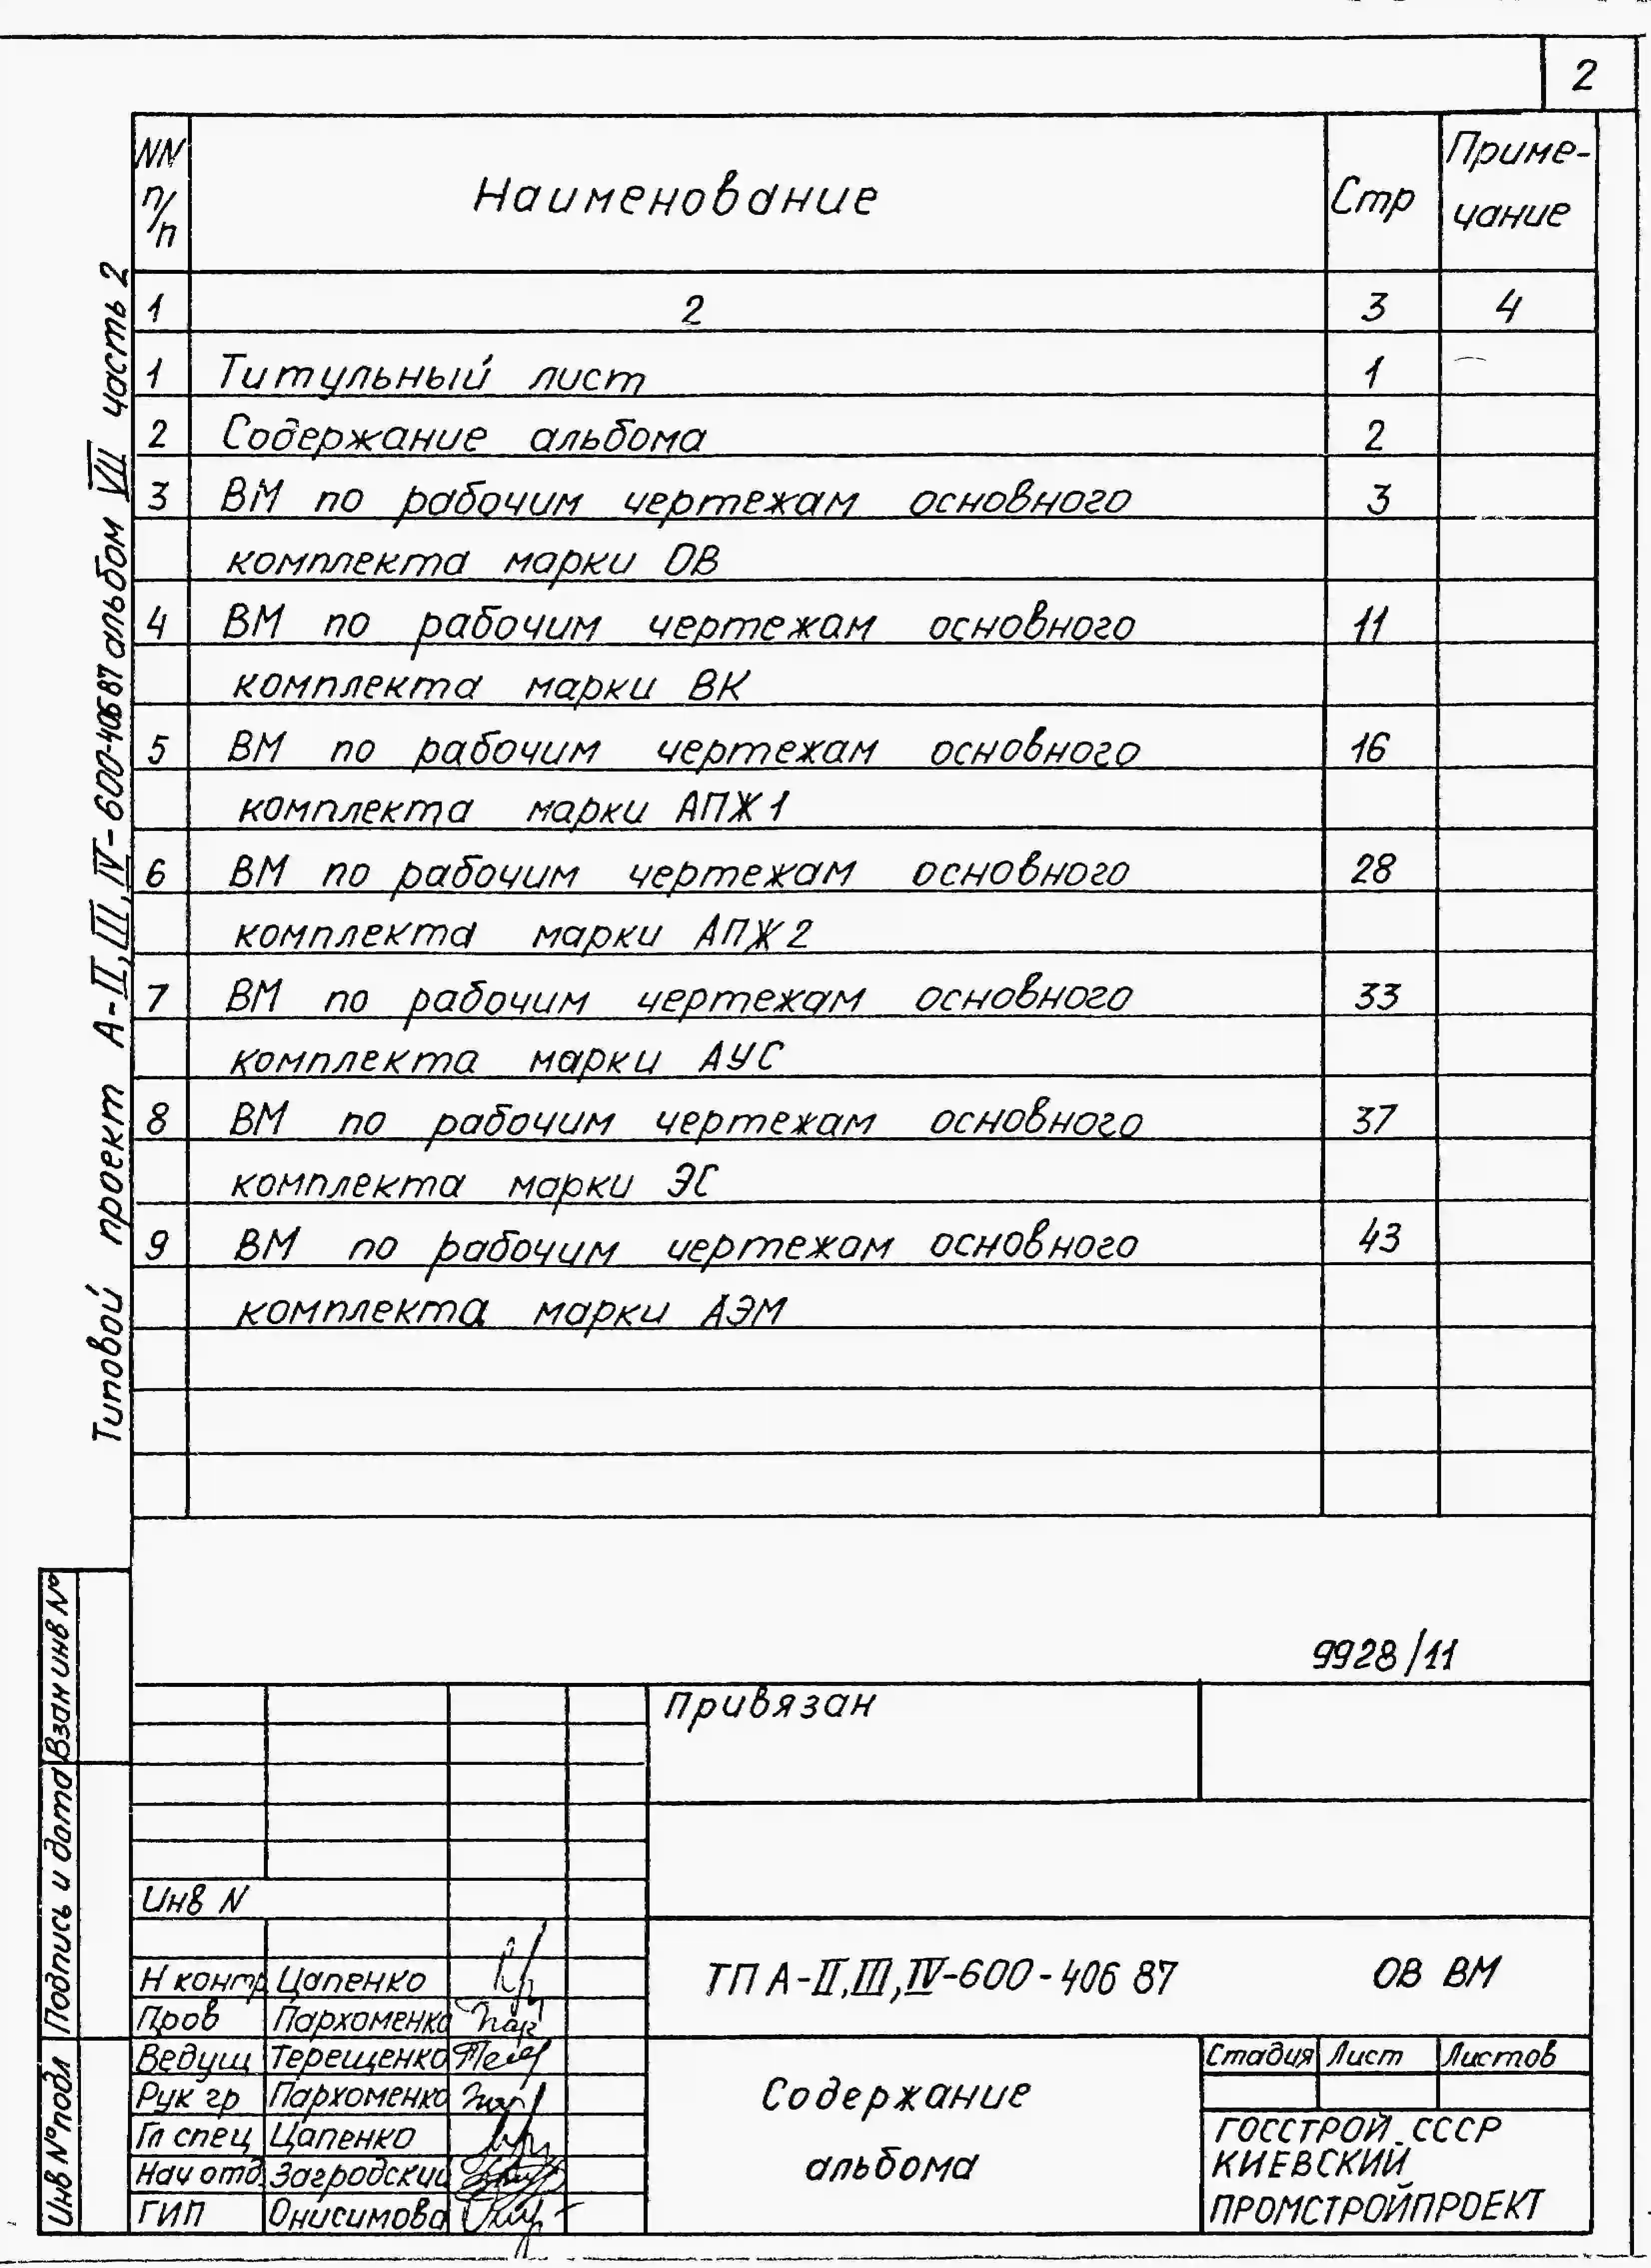 2
NN п/п Наименование Стр Приме-
чание
1 2 3 4
1 Титульный лист 1
2 Содержание альбома 2
3 ВМ по рабочим чертежам основного 3
комплекта марки ОВ
4 ВМ по рабочим чертежам основного 11
комплекта марки ВК
5 ВМ по рабочим чертежам основного 16
комплекта марки АПЖ1
6 ВМ по рабочим чертежам основного 28
комплекта марки АПЖ2
7 ВМ по рабочим чертежам основного 33
комплекта марки АУС
8 ВМ по рабочим чертежам основного 37
комплекта марки ЭС
9 ВМ по рабочим чертежам основного 43
комплекта марки АЭМ
Типовой проект А-II,III,IV-600-406 87 альбом VII часть 2
Взам инв №
Подпись и дата
Инв № подл
9928/11
Привязан
Инв N
Н контр Цапенко
Пров Пархоменко
Ведущ Терещенко
Рук гр Пархоменко
Гл спец Цапенко
Нач отд Загродский
ГИП Онисимова
ТП А-II,III,IV-600-406 87 ОВ ВМ
Содержание
альбома
Стадия Лист Листов
ГОССТРОЙ СССР
КИЕВСКИЙ
ПРОМСТРОЙПРОЕКТ